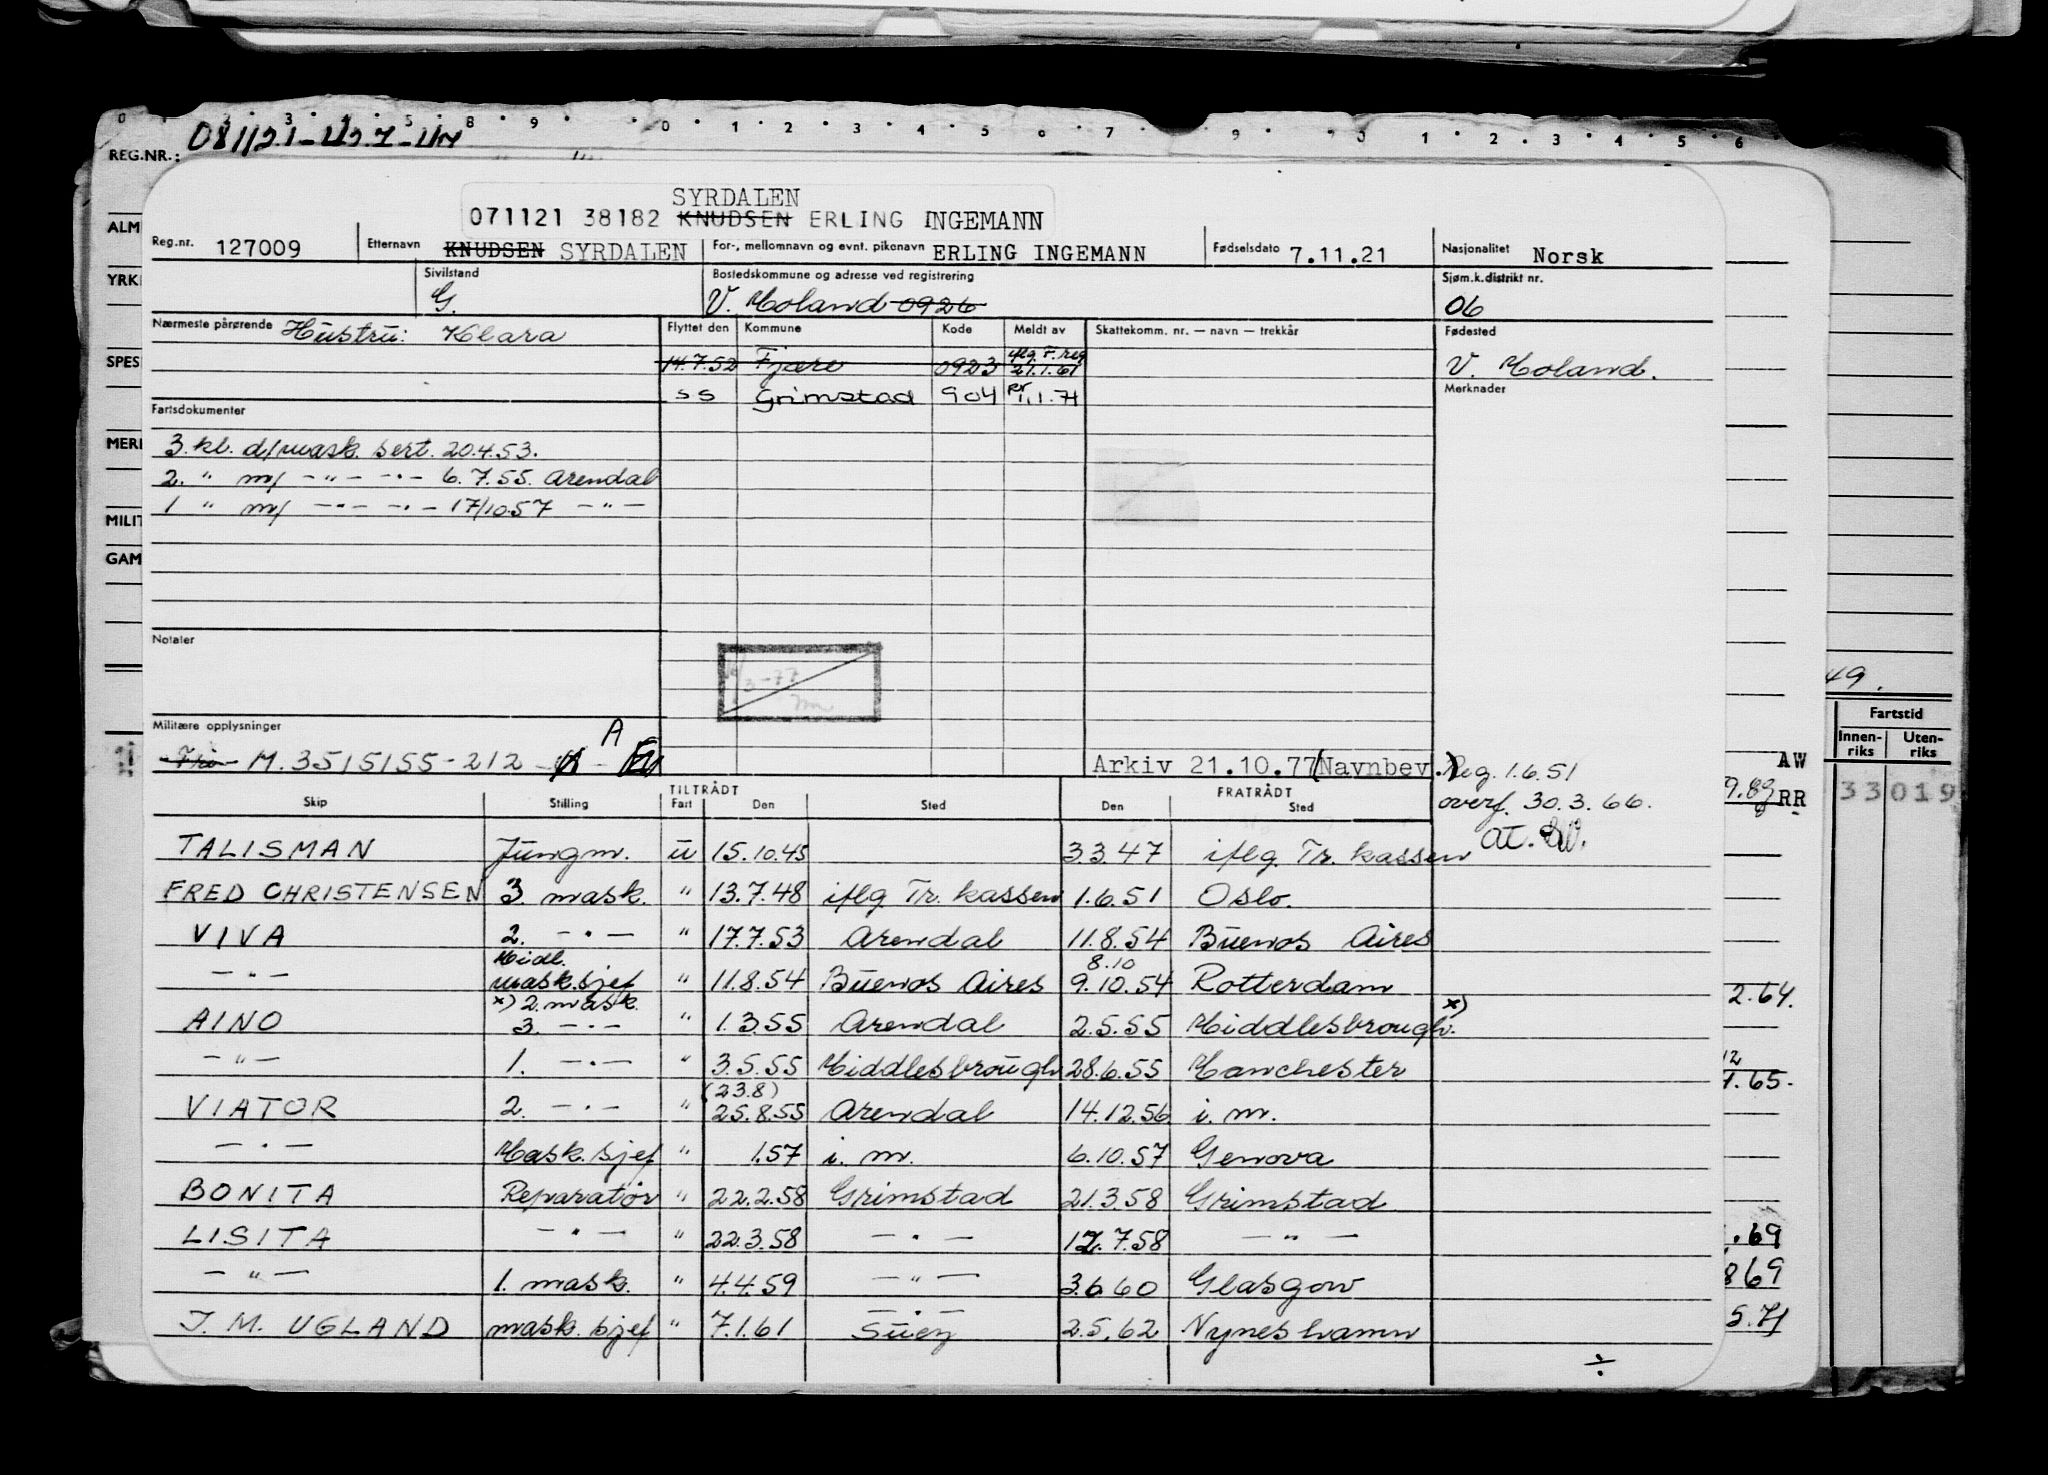 REG.NR.: 081121-
SYRDALEN
071121 38182 KNUDSEN ERLING INGEMANN
Reg.nr. 127009 Etternavn KNUDSEN SYRDALEN For-, mellomnavn og evnt. pikenavn ERLING INGEMANN Fødselsdato 7.11.21 Nasjonalitet Norsk
Sivilstand G. Bostedskommune og adresse ved registrering V. Moland 0926 Sjøm.k.distrikt nr. 06
Nærmeste pårørende Hustru: Klara Flyttet den Kommune Kode Meldt av Skattekomm. nr. — navn — trekkår Fødested
14.7.52 Fjære 0923 iflg. F. reg 21.1.61 V. Moland.
ss Grimstad 904 pr 1.1.71 Merknader
Fartsdokumenter
3. kl. d/mask. sert. 20.4.53.
2. " m/ - " - - " - 6.7.55. Arendal
1 " m/ - " - - " - 17/10.57 - " -
Notater
3-77
Militære opplysninger
Fri M. 3515155-212 A
Arkiv 21.10.77(Navnbev.)
Reg. 1.6.51
overf. 30.3.66.
TILTRÅDT FRATRÅDT
Skip Stilling Fart Den Sted Den Sted
TALISMAN Jungm. u 15.10.45 3.3.47 iflg. Tr. kassen
FRED CHRISTENSEN 3. mask. " 13.7.48 iflg Tr. kassen 1.6.51 Oslo.
VIVA 2. - " - " 17.7.53 Arendal 11.8.54 Buenos Aires
- " - Midl. mask.sjef " 11.8.54 Buenos Aires 8.10 9.10.54 Rotterdam
x) 2. mask. x)
AINO 3. - " - " 1.3.55 Arendal 2.5.55 Middlesbrough.
- " - 1. - " - " 3.5.55 Middlesbrough 28.6.55 Manchester
(23.8)
VIATOR 2. - " - " 25.8.55 Arendal 14.12.56 i. m.
- " - Mask. sjef " 1.57 i. m. 6.10.57 Genova
BONITA Reparatør " 22.2.58 Grimstad 21.3.58 Grimstad
LISITA - " - " 22.3.58 - " - 12.7.58 - " -
- " - 1. mask. " 4.4.59 - " - 3.6.60 Glasgow
J. M. UGLAND mask. sjef " 7.1.61 Suez 2.5.62 Nyneshamn
÷
ALM
YRK
SPES
MER
MILIT
GAM
49.
Fartstid
Innen-riks Uten-riks
AW
9.89 RR
33019
2.64.
12
.65.
.69
869
5.71